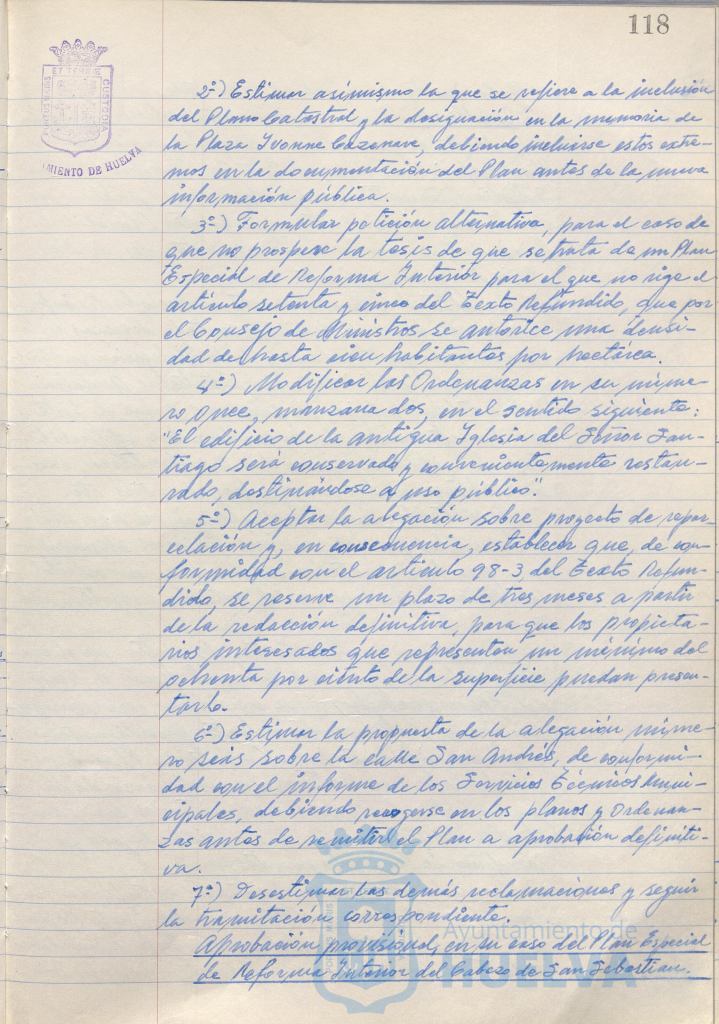 118
PORTUS MARIS ET TERRAE CUSTODIA
AMIENTO DE HUELVA
2º) Estimar asimismo la que se refiere a la inclusión
del Plano Catastral y la designación en la memoria de
la Plaza Ivonne Cazenave, debiendo incluirse estos extre-
mos en la documentación del Plan antes de la nueva
información pública.
3º) Formular petición alternativa, para el caso de
que no prospere la tesis de que se trata de un Plan
Especial de Reforma Interior para el que no rige el
artículo setenta y cinco del Texto Refundido, que por
el Consejo de Ministros se autorice una densi-
dad de hasta cien habitantes por hectárea.
4º) Modificar las Ordenanzas en su núme-
ro once, manzana dos, en el sentido siguiente:
"El edificio de la antigua Iglesia del Señor San-
tiago será conservado y convenientemente restau-
rado, destinándose a uso público".
5º) Aceptar la alegación sobre proyecto de repar-
celación y, en consecuencia, establecer que, de con-
formidad con el artículo 98-3 del Texto Refun-
dido, se reserve un plazo de tres meses a partir
de la redacción definitiva, para que los propieta-
rios interesados que representen un mínimo del
ochenta por ciento de la superficie puedan presen-
tarlo.
6º) Estimar la propuesta de la alegación núme-
ro seis sobre la calle San Andrés, de conformi-
dad con el informe de los Servicios Técnicos Muni-
cipales, debiendo recogerse en los planos y Ordenan-
zas antes de remitir el Plan a aprobación definiti-
va.
7º) Desestimar las demás reclamaciones y seguir
la tramitación correspondiente.
Aprobación provisional, en su caso del Plan Especial
de Reforma Interior del Cabezo de San Sebastian.
Ayuntamiento de
HUELVA